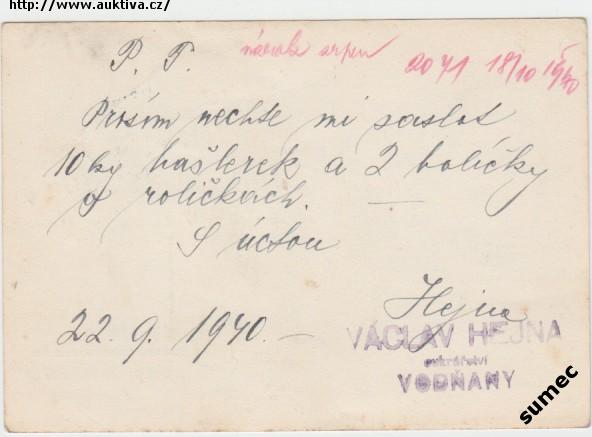 http://www.auktiva.cz/
P. T.
2071 18/10 1940
Prosím nechte mi zaslat
10 kg hašlerek a 2 balíčky
v roličkách. —
S úctou
Hejna
22. 9. 1940. –
VÁCLAV HEJNA
cukrářství
VODŇANY
sumec